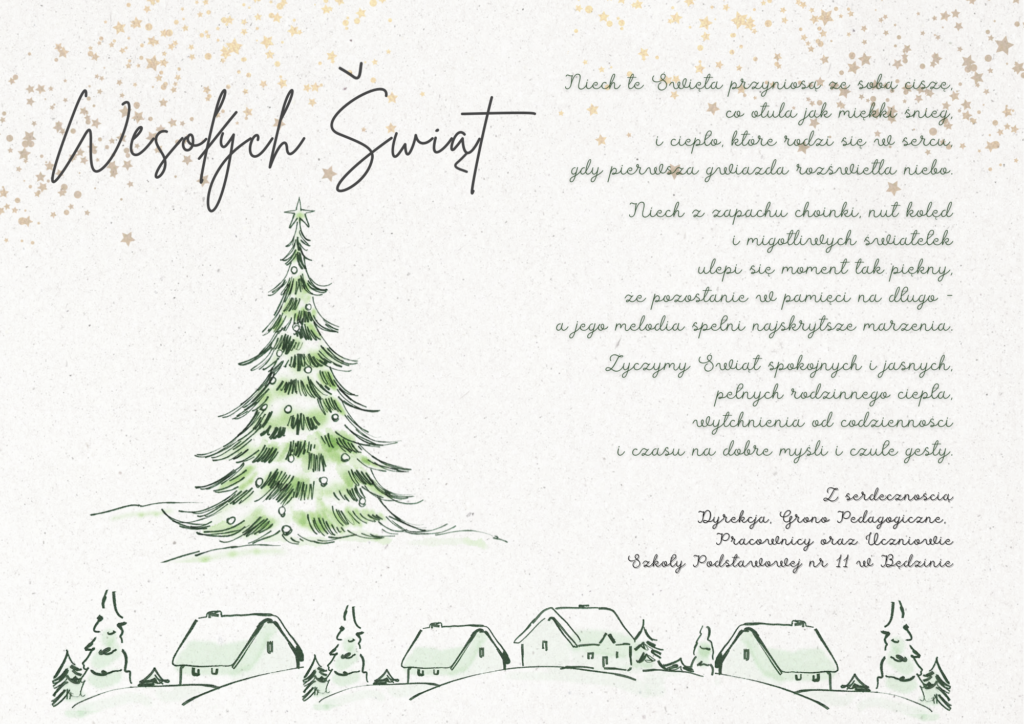 Wesołych Świąt
Niech te Święta przyniosą ze sobą ciszę,
co otula jak miękki śnieg,
i ciepło, które rodzi się w sercu,
gdy pierwsza gwiazda rozświetla niebo.
Niech z zapachu choinki, nut kolęd
i migotliwych światełek
ulepi się moment tak piękny,
że pozostanie w pamięci na długo -
a jego melodia spełni najskrytsze marzenia.
Życzymy Świąt spokojnych i jasnych,
pełnych rodzinnego ciepła,
wytchnienia od codzienności
i czasu na dobre myśli i czułe gesty.
Z serdecznością
Dyrekcja, Grono Pedagogiczne,
Pracownicy oraz Uczniowie
Szkoły Podstawowej nr 11 w Będzinie